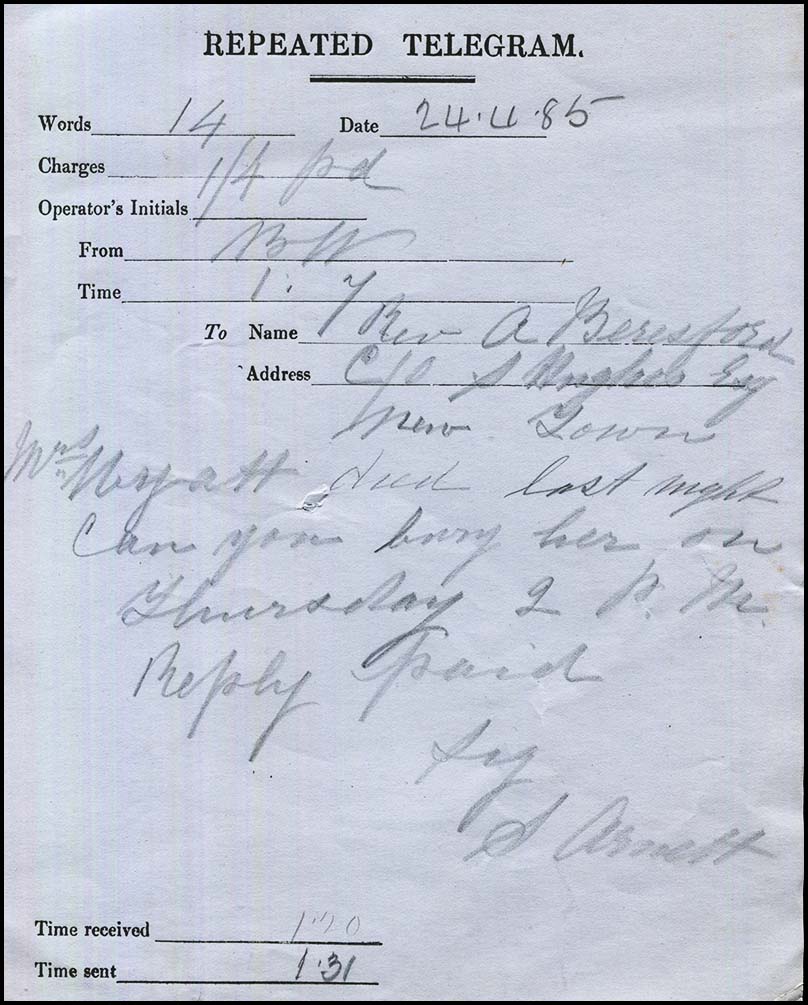 REPEATED TELEGRAM.
Words 14 Date 24.4.85
Charges 1/4 pd
Operator's Initials
From BW
Time 1.7
To Name Rev A Beresford
Address C/O S Hughes Esq
New Town
Mrs Wyatt died last night
Can you bury her on
Thursday 2 P.M.
Reply paid
Sig
S Arnett
Time received 1"20
Time sent 1.31